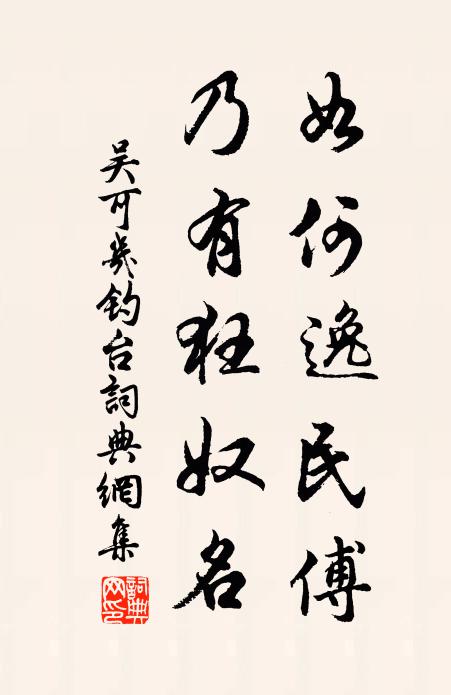 如何逸民傅
乃有狂奴名
吴可幾钓台詞典網集
詞典网印